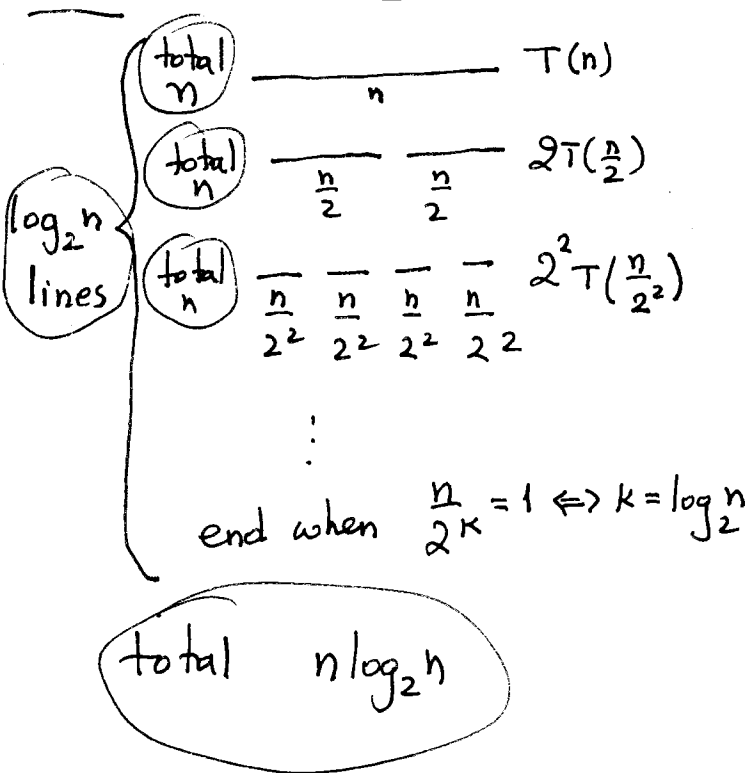 total n n T(n)
total n n/2 n/2 2T(n/2)
log₂n lines
total n n/2² n/2² n/2² n/2² 2²T(n/2²)
⋮
end when n/2ᴷ = 1 ⇔ K = log₂n
total n log₂n